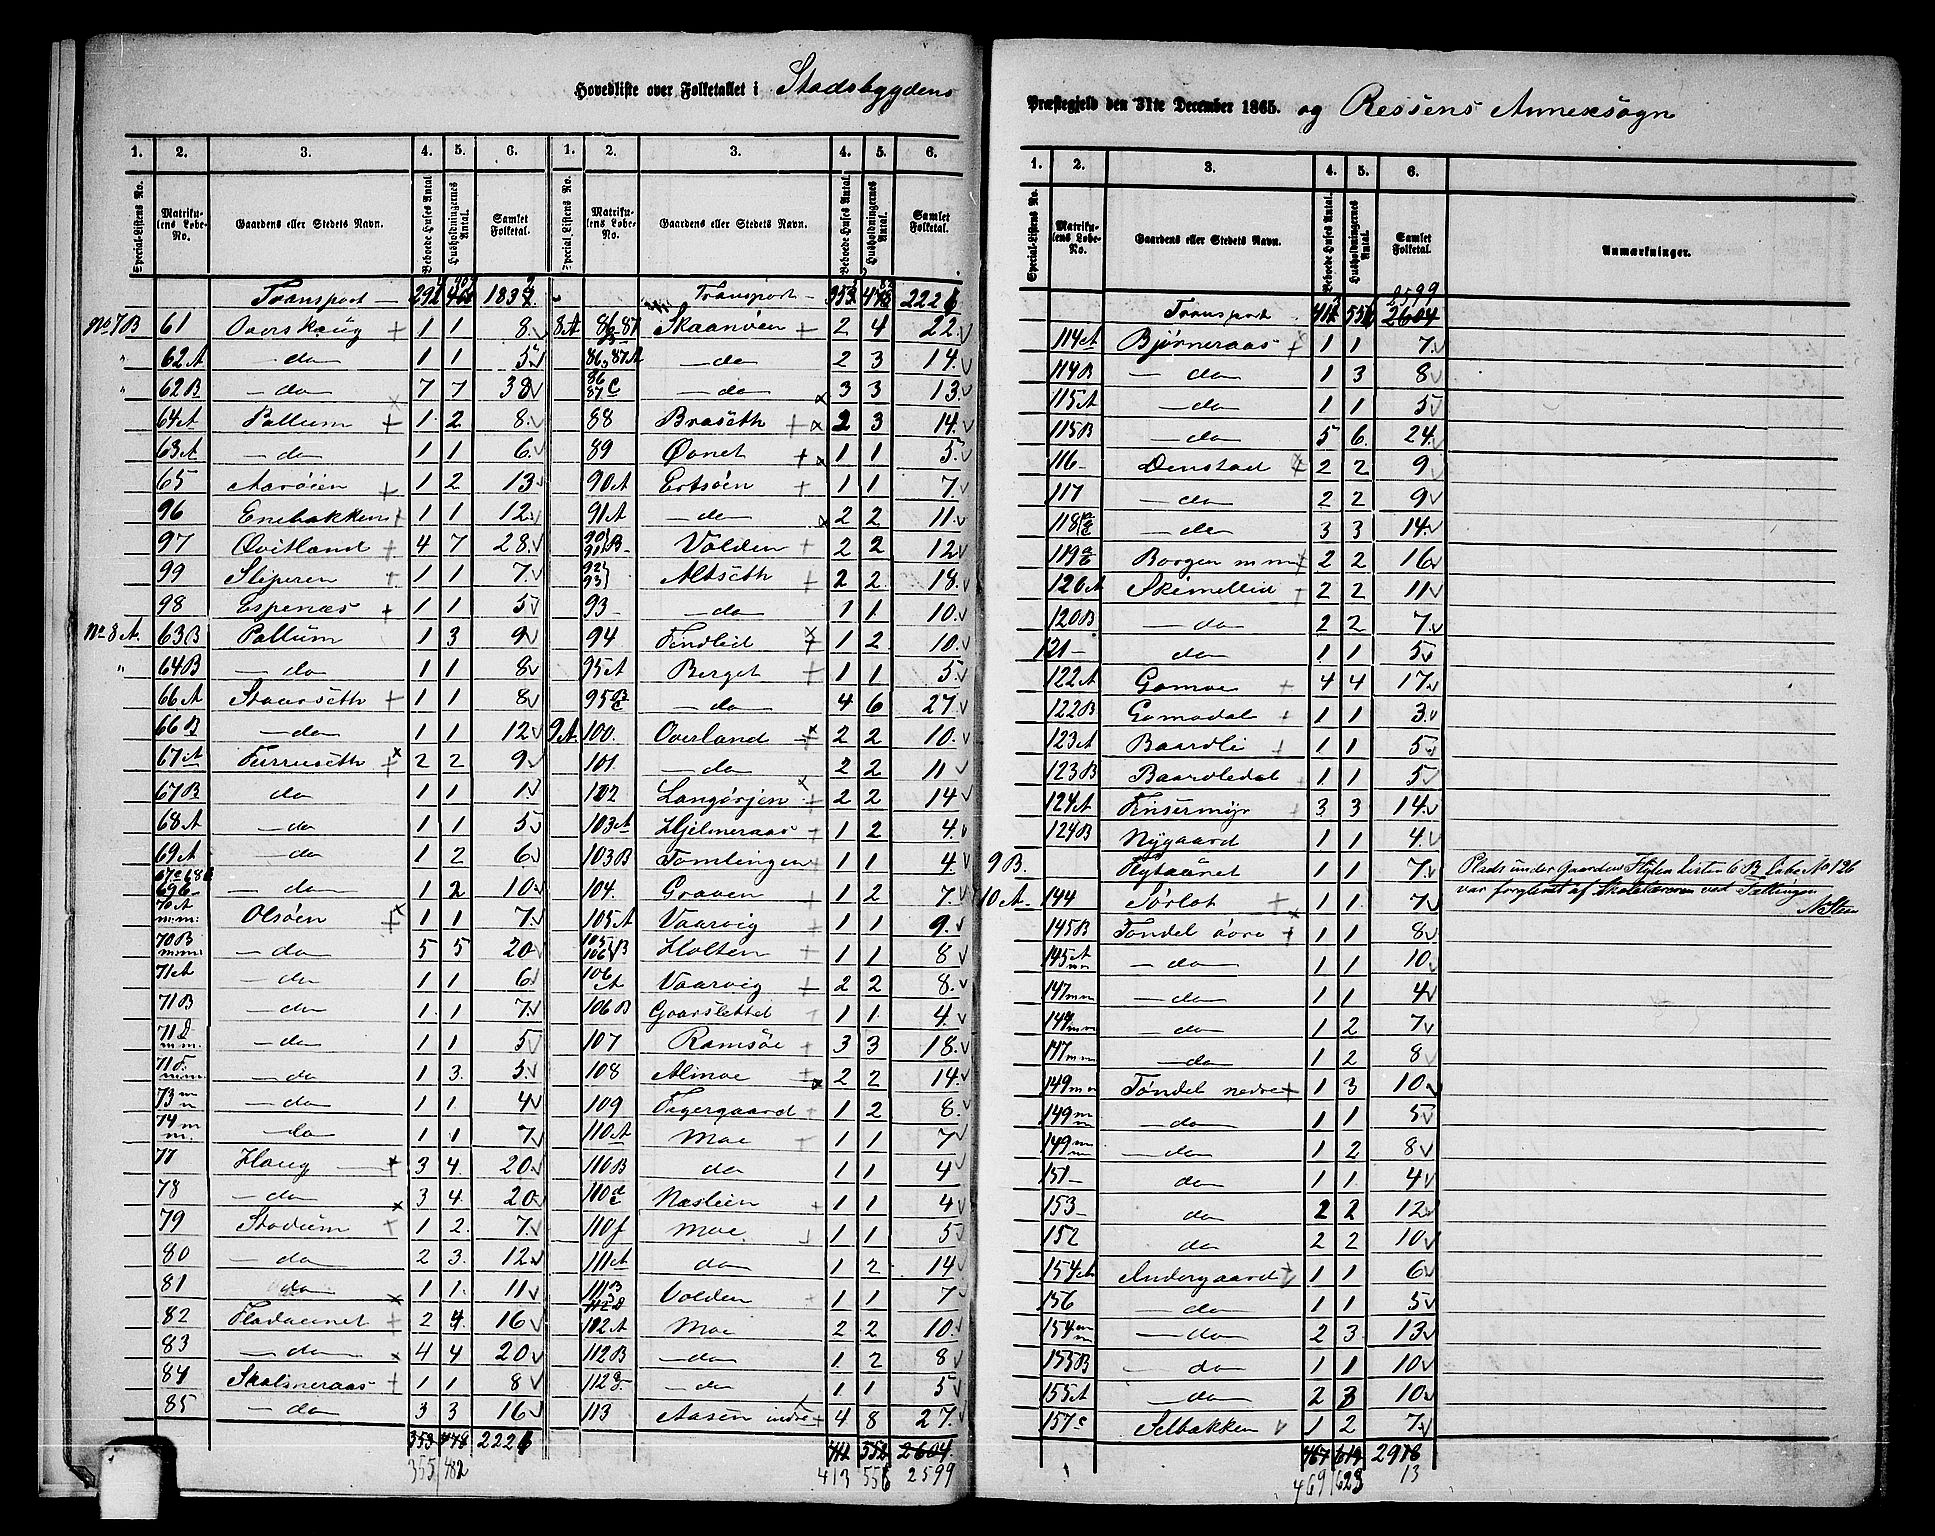 Hovedliste over Folketallet i Stadsbygdens
Præstegjeld den 31te December 1865. og Rissens Annexsogn
1. 2. 3. 4. 5. 6. 1. 2. 3. 4. 5. 6.
Special-Listens No. Matrikulens Løbe-No. Gaardens eller Stedets Navn. Beboede Huses Antal. Husholdningernes Antal. Samlet Folketal.
Transport
No 7B 61 Overskaug 1 1 8
" 62A do 1 1 5
" 62B do 7 7 38
64A Pallum 1 2 8
63A do 1 1 6
65 Aarøien 1 2 13
96 Enebakken 1 1 12
97 Qvitland 4 7 28
99 Sliperen 1 1 7
98 Espenæs 1 1 5
No 8A. 63B Pallum 1 3 9
" 64B do 1 1 8
66A Staurseth 1 1 8
66B do 1 1 12
67A Furruseth 2 2 9
67B do 1 1 1
68A do 1 1 5
69A do 1 2 6
do 1 2 10
70A m.m. Olsøen 1 1 7
70B m.m. do 5 5 20
71A do 1 1 6
71B do 1 1 7
71D m.m. do 1 1 5
71F m.m. do 1 3 5
73 m m do 1 1 4
74 m m. do 1 1 7
77 Haug 3 4 20
78 do 3 4 20
79 Stadum 1 2 7
80 do 2 3 12
81 do 1 1 11
82 Fladaunet 2 4 16
83 do 4 4 20
84 Skalmeraas 1 1 8
85 do 3 3 16
353 478 2221
355 482
Transport
8A Skaanøen 2 4 22
86, 87A do 2 3 14
86 87 C do 3 3 13
88 Braseth 2 3 14
89 Øvnet 1 1 5
90A Ertsøen 1 1 7
91A do 2 2 11
90 91 B Volden 2 2 12
92 93 Altseth 2 2 18
93 do 1 1 10
94 Findlid 1 2 10
95A Berget 1 1 5
95 do 4 6 27
9A. 100. Overland 2 2 10
101 do 2 2 11
102 Langørjen 2 2 14
103A Hjelmeraas 1 2 4
103B Tomlingen 1 1 4
104. Graven 1 2 7
105A Vaarvig 1 1 9
105 106 B Holten 1 1 8
106 A Vaarvig 2 2 8
106B Gaarslettet 1 1 4
107 Ramsøe 3 3 18
108 Alimoe 2 2 14
109 Fagergaard 1 2 8
110A Moe 1 1 7
110B do 1 1 4
110 Næslien 1 1 4
110f Moe 1 1 5
111A do 1 2 14
111B Volden 1 1 7
102A Moe 2 2 10
112B do 1 2 8
112 do 1 1 5
113 Aasen indre 4 8 27
412 552 2604
413 556 2599
1. 2. 3. 4. 5. 6.
Special-Listens No. Matrikulens Løbe-No. Gaardens eller Stedets Navn. Beboede Huses Antal. Husholdningernes Antal. Samlet Folketal. Anmærkninger.
2599
Transport 2604
114A Bjørneraas 1 1 7
114B do 1 3 8
115A do 1 1 5
115B do 5 6 24
116 Denstad 2 2 9
117 do 2 2 9
118 do 3 3 14
119 Borgen m m 2 2 16
120A Skimellid 2 2 11
120B do 2 2 7
121 do 1 1 5
122A Gamoe 4 4 17
122B Gamodal 1 1 3
123A Baardli 1 1 5
123B Baardlidal 1 1 5
124A Finsermyr 3 3 14
124B Nygaard 1 1 4
9B. Flytaaret 1 1 7 Plads under Gaarden Flyten Listen 6 B Løbe No 126
10A 144 Sørlot 1 1 7 var forglemt af Skolelæreren ved Tællingen
145B Tøndel øvre 1 1 8
145A mm do 1 1 10
147mm do 1 1 4
149mm do 1 2 7
147mm do 1 2 8
149mm Tøndel nedre 1 3 10
149mm do 1 1 5
149mm do 1 2 8
151 do 1 1 4
153 do 2 2 12
152 do 2 2 10
154A Andergaard 1 1 6
156 do 1 1 5
154mm do 2 3 13
155B do 1 1 10
155A do 2 3 10
157c Selbakken 1 2 7
467 619 2918
469 623 13